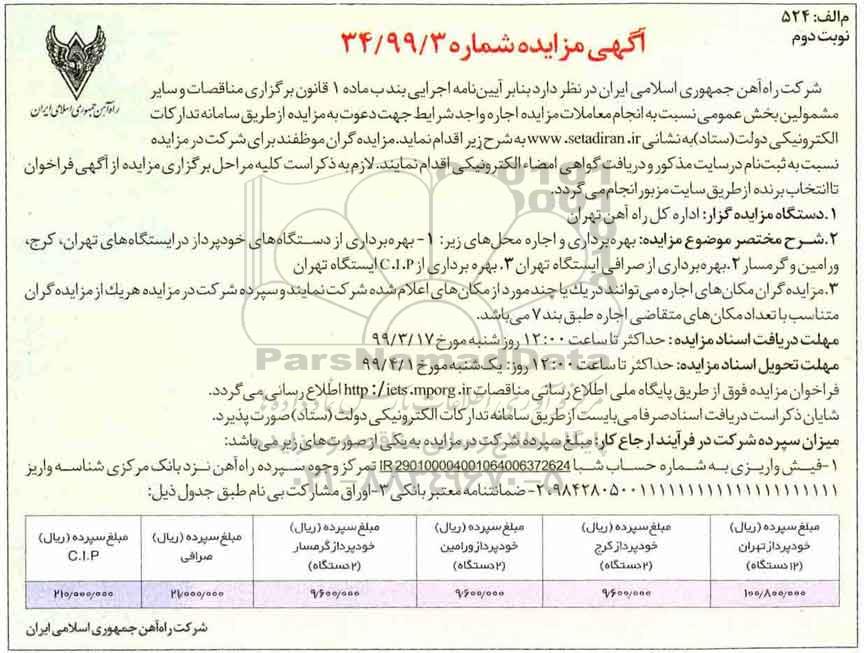 م الف: ۵۲۴
نوبت دوم
آگهی مزایده شماره ۳۴/۹۹/۳
راه آهن جمهوری اسلامی ایران
شرکت راه آهن جمهوری اسلامی ایران در نظر دارد بنابر آیین‌نامه اجرایی بند ب ماده ۱ قانون برگزاری مناقصات و سایر
مشمولین بخش عمومی نسبت به انجام معاملات مزایده اجاره واجد شرایط جهت دعوت به مزایده از طریق سامانه تدارکات
الکترونیکی دولت (ستاد) به نشانی www.setadiran.ir به شرح زیر اقدام نماید. مزایده گران موظفند برای شرکت در مزایده
نسبت به ثبت نام در سایت مذکور و دریافت گواهی امضاء الکترونیکی اقدام نمایند. لازم به ذکر است کلیه مراحل برگزاری مزایده از آگهی فراخوان
تا انتخاب برنده از طریق سایت مزبور انجام می گردد.
۱.دستگاه مزایده گزار: اداره کل راه آهن تهران
۲.شرح مختصر موضوع مزایده: بهره‌برداری و اجاره محل‌های زیر: ۱- بهره‌برداری از دستگاه‌های خودپرداز در ایستگاه‌های تهران، کرج،
ورامین و گرمسار ۲.بهره‌برداری از صرافی ایستگاه تهران ۳.بهره برداری از C.I.P ایستگاه تهران
۳.مزایده گران مکان‌های اجاره می‌توانند در یك یا چند مورد از مکان‌های اعلام شده شرکت نمایند و سپرده شرکت در مزایده هر یك از مزایده گران
متناسب با تعداد مکان‌های متقاضی اجاره طبق بند ۷ می‌باشد.
مهلت دریافت اسناد مزایده: حداکثر تا ساعت ۱۲:۰۰ روز شنبه مورخ ۹۹/۳/۱۷
مهلت تحویل اسناد مزایده: حداکثر تا ساعت ۱۲:۰۰ روز: یک‌شنبه مورخ ۹۹/۴/۱
فراخوان مزایده فوق از طریق پایگاه ملی اطلاع رسانی مناقصات http:/iets.mporg.ir اطلاع رسانی می گردد.
شایان ذکر است دریافت اسناد صرفا می بایست از طریق سامانه تدارکات الکترونیکی دولت (ستاد) صورت پذیرد.
میزان سپرده شرکت در فرآیند ارجاع کار: مبلغ سپرده شرکت در مزایده به یکی از صورت‌های زیر می باشد:
۱-فیش واریزی به شماره حساب شبا IR 290100004001064006372624 تمرکز وجوه سپرده راه آهن نزد بانک مرکزی شناسه واریز
۲- ضمانتنامه معتبر بانکی ۳-اوراق مشارکت بی نام طبق جدول ذیل:
مبلغ سپرده (ریال) خودپرداز تهران (۱۲ دستگاه)
مبلغ سپرده (ریال) خودپرداز کرج (۲ دستگاه)
مبلغ سپرده (ریال) خودپرداز ورامین (۲ دستگاه)
مبلغ سپرده (ریال) خودپرداز گرمسار (۲ دستگاه)
مبلغ سپرده (ریال) صرافی
مبلغ سپرده (ریال) C.I.P
۱۰۰/۸۰۰/۰۰۰ ۹/۶۰۰/۰۰۰ ۹/۶۰۰/۰۰۰ ۹/۶۰۰/۰۰۰ ۲۱/۰۰۰/۰۰۰ ۲۱۰/۰۰۰/۰۰۰
شرکت راه آهن جمهوری اسلامی ایران
ParsNamadData
۰۲۱-۸۸۳۴۹۶۷۰-۵